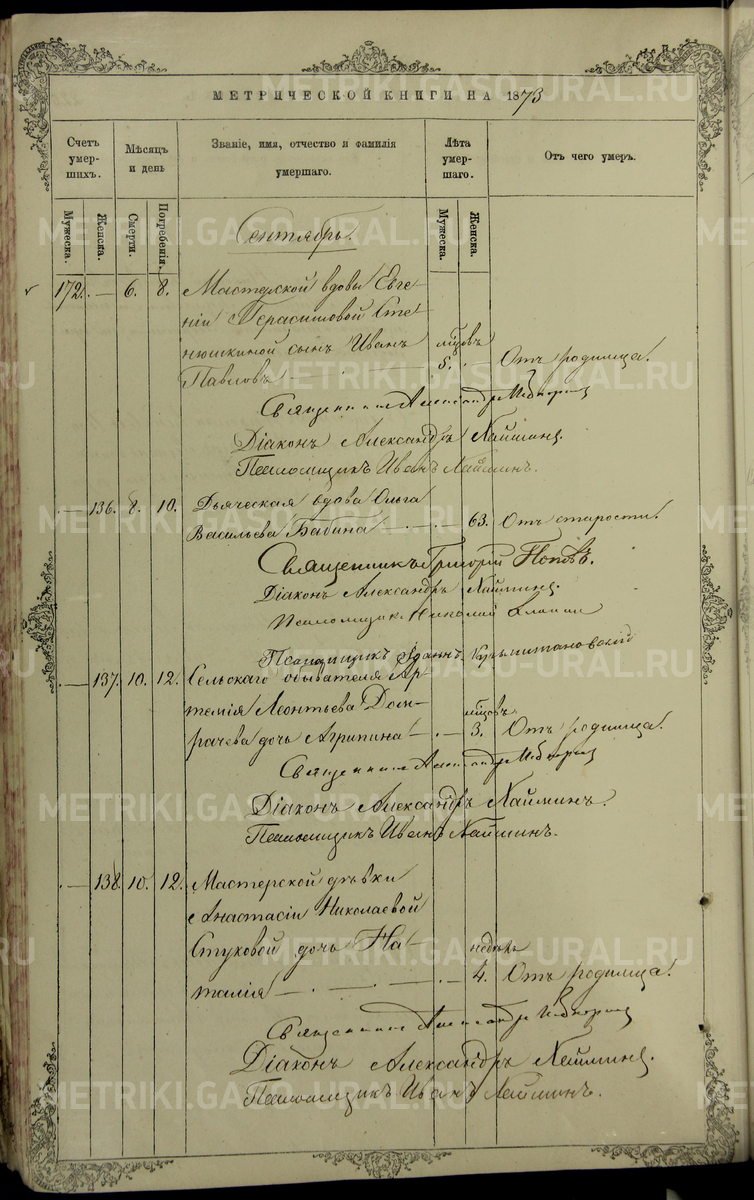 МЕТРИЧЕСКОЙ КНИГИ НА 1873
Счетъ умер-шихъ.
Мѣсяцъ и день
Званіе, имя, отчество и фамилія умершаго.
Лѣта умер-шаго.
Отъ чего умеръ.
Мужеска.
Женска.
Смерти.
Погребенія.
Мужеска.
Женска.
Сентябрь.
172. — 6. 8. Мастерской вдовы Евге-
ніи Герасимовой Сте-
нюшкиной сынъ Иванъ мѣцовъ
Павловъ — 5. — Отъ родимца.
Священникъ Александръ
Діаконъ Александръ Наймин
Псаломщикъ Иванъ Найминъ.
— 136. 8. 10. Дьяческая вдова Ольга
Васильева Бабина — 63. Отъ старости.
Священникъ Григорій Поповъ.
Діаконъ Александръ Наймин
Псаломщикъ Николай
Псаломщикъ Іоаннъ
— 137. 10. 12. Сельскаго обывателя Ар-
темія Леонтьева Дол- мѣцовъ
рачева дочь Агрипина — 3. Отъ родимца.
Священникъ Александръ
Діаконъ Александръ Найминъ.
Псаломщикъ Иванъ Найминъ.
— 138. 10. 12. Мастерской дѣвки
Анастасіи Николаевой
Стуковой дочь На- недѣль
талія — 4. Отъ родимца.
Священникъ Александръ
Діаконъ Александръ Наймин
Псаломщикъ Иванъ Найминъ.
METRIKI.GASO-URAL.RU